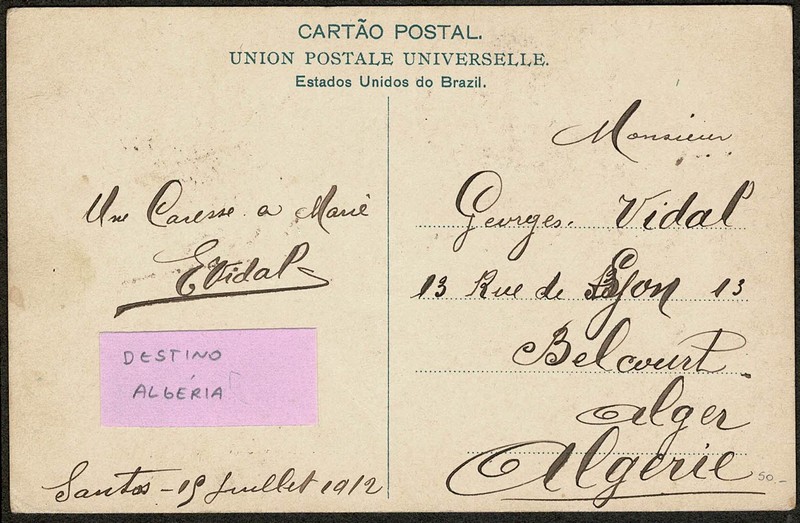 CARTÃO POSTAL.
UNION POSTALE UNIVERSELLE.
Estados Unidos do Brazil.
Une Caresse a Marie
EVidal
DESTINO
ALGÉRIA
Santos - 15 Juillet 1912
Monsieur
Georges. Vidal
13 Rue de Lyon 13
Belcourt
Alger
Algerie
50-